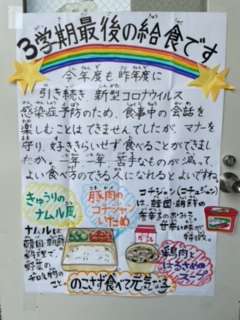 3学期最後の給食です
今年度も昨年度に
引き続き 新型コロナウイルス
感染症予防のため、食事中の会話を
楽しむことはできませんでしたが、マナーを
守り、好ききらいせず食べることができまし
たか。一年一年 苦手なものが減って、
よい食べ方のできる人になれるとよいですね。
きゅうりの
ナムル風
ナムルとは
韓国・朝鮮
料理で、
野菜の
こと。
豚肉の
コチジャン
いため
コチジャン(コチュジャン)
は、韓国・朝鮮の
甘辛い味が
特徴。
鶏肉と
はるさめの
スープ
のこさず食べて元気な子